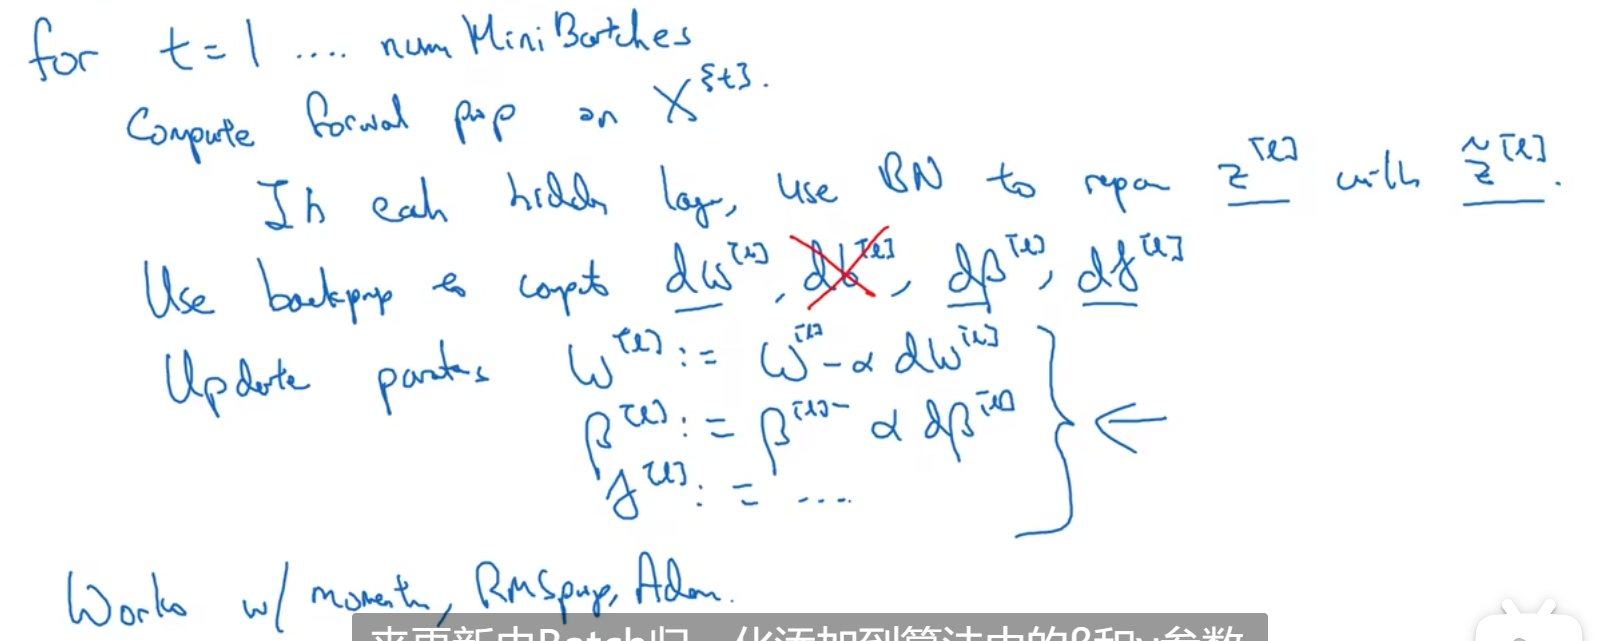 for t = 1 .... num MiniBatches
Compute forward prop on X^{t}.
In each hidden layer, use BN to repar z^[l] with z̃^[l].
Use backprop to compute dw^[l], db^[l], dβ^[l], dγ^[l]
Update parates W^[l] := W^[l] - α dw^[l]
β^[l] := β^[l] - α dβ^[l]
γ^[l] := ....
Works w/ moment, RMSprop, Adam.
来更新由Batch归一化添加到算法中的β和γ参数